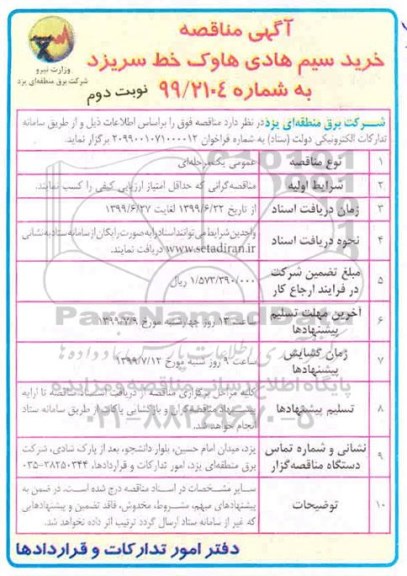 آگهی مناقصه
خرید سیم هادی هاوک خط سریزد
به شماره ۹۹/۲۱۰۴ نوبت دوم
وزارت نیرو
شرکت برق منطقه‌ای یزد
شرکت برق منطقه‌ای یزد در نظر دارد مناقصه فوق را براساس اطلاعات ذیل و از طریق سامانه
تدارکات الکترونیکی دولت (ستاد) به شماره فراخوان ۲۰۹۹۰۰۱۰۷۱۰۰۰۰۱۲ برگزار نماید.
۱ نوع مناقصه عمومی یک‌مرحله‌ای
۲ شرایط اولیه مناقصه‌گرانی که حداقل امتیاز ارزیابی کیفی را کسب نمایند.
۳ زمان دریافت اسناد از تاریخ ۱۳۹۹/۶/۲۲ لغایت ۱۳۹۹/۶/۲۷
۴ نحوه دریافت اسناد واجدین شرایط می‌توانند اسناد را به صورت رایگان از سامانه ستاد به نشانی
www.setadiran.ir دریافت نمایند.
۵ مبلغ تضمین شرکت
در فرایند ارجاع کار ۱/۵۷۳/۳۹۰/۰۰۰ ریال
۶ آخرین مهلت تسلیم
پیشنهادها ساعت ۱۴ روز چهارشنبه مورخ ۱۳۹۹/۷/۹
۷ زمان گشایش
پیشنهادها ساعت ۹ روز شنبه مورخ ۱۳۹۹/۷/۱۲
۸ تسلیم پیشنهادها کلیه مراحل برگزاری مناقصه از دریافت اسناد مناقصه تا ارایه
پیشنهاد مناقصه‌گران و بازگشایی پاکات از طریق سامانه ستاد
انجام خواهد شد.
۹ نشانی و شماره تماس
دستگاه مناقصه‌گزار یزد، میدان امام حسین، بلوار دانشجو، بعد از پارک شادی، شرکت
برق منطقه‌ای یزد، امور تدارکات و قراردادها، ۳۸۲۵۰۳۴۴-۰۳۵
۱۰ توضیحات سایر مشخصات در اسناد مناقصه درج شده است. در ضمن به
پیشنهادهای مبهم، مشروط، مخدوش، فاقد تضمین و پیشنهادهایی
که غیر از سامانه ستاد ارسال گردد ترتیب اثر داده نخواهد شد.
دفتر امور تدارکات و قراردادها
ParsNamadData
پایگاه اطلاع رسانی مناقصه و مزایده
۰۲۱-۸۸۳۴۹۶۷۰-۵